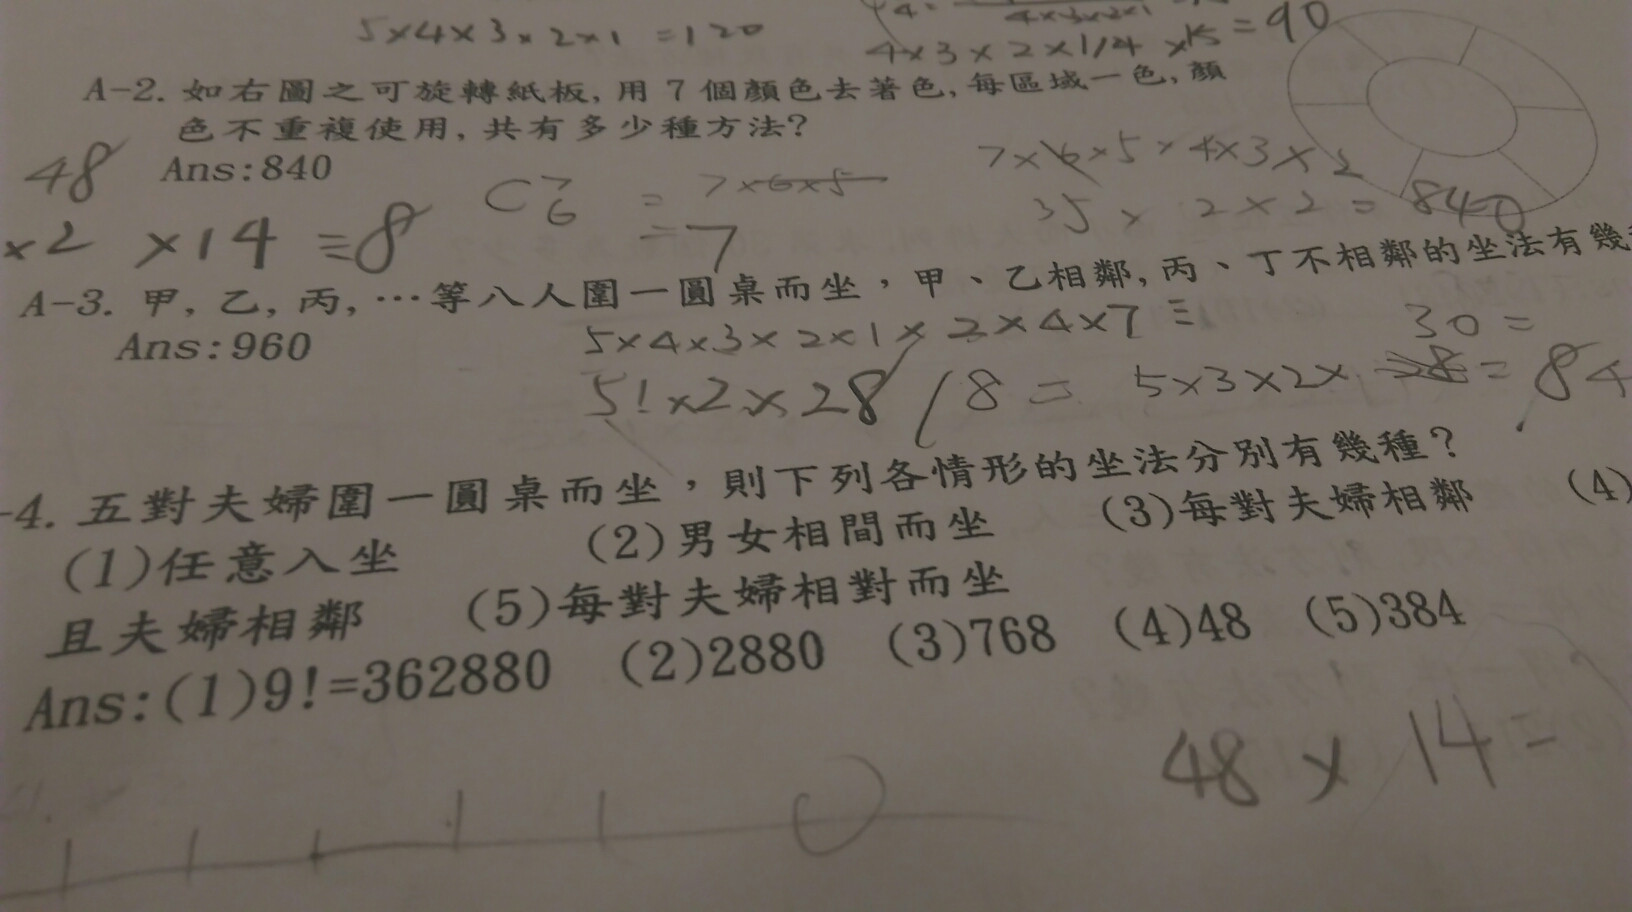 5×4×3×2×1=120
4×3×2×1/4 ×15=90
A-2. 如右圖之可旋轉紙板, 用 7 個顏色去著色, 每區域一色, 顏
色不重複使用, 共有多少種方法?
Ans:840
48
7×6×5×4×3×2
C 7 6 = 7×6×5
=7
35×2×2=840
×2 ×14 =8
A-3. 甲, 乙, 丙, …等八人圍一圓桌而坐，甲、乙相鄰, 丙、丁不相鄰的坐法有幾
Ans:960
5×4×3×2×1×2×4×7=
30=
5!×2×28/8= 5×3×2× 28=84
-4. 五對夫婦圍一圓桌而坐，則下列各情形的坐法分別有幾種？
(1)任意入坐 (2)男女相間而坐 (3)每對夫婦相鄰 (4)
且夫婦相鄰 (5)每對夫婦相對而坐
Ans:(1)9!=362880 (2)2880 (3)768 (4)48 (5)384
48×14=